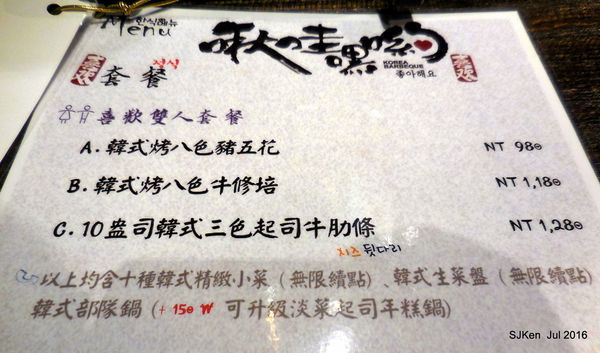 Menu 한식메뉴
啾哇嘿喲
KOREA
BARBEQUE
좋아해요
정식
套餐
喜歡雙人套餐
A. 韓式烤八色豬五花 NT 980
B. 韓式烤八色牛修培 NT 1,180
C. 10盎司韓式三色起司牛肋條 NT 1,280
치즈 뒷다리
以上均含十種韓式精緻小菜 (無限續點)、韓式生菜盤 (無限續點)
韓式部隊鍋 (+ 150 ₩ 可升級淡菜起司年糕鍋)
SJKen Jul 2016